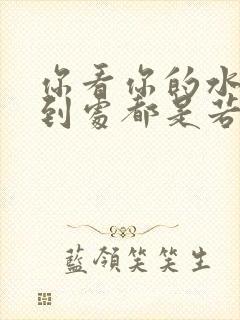 你看你的水
到處都是若
藍領笑笑生